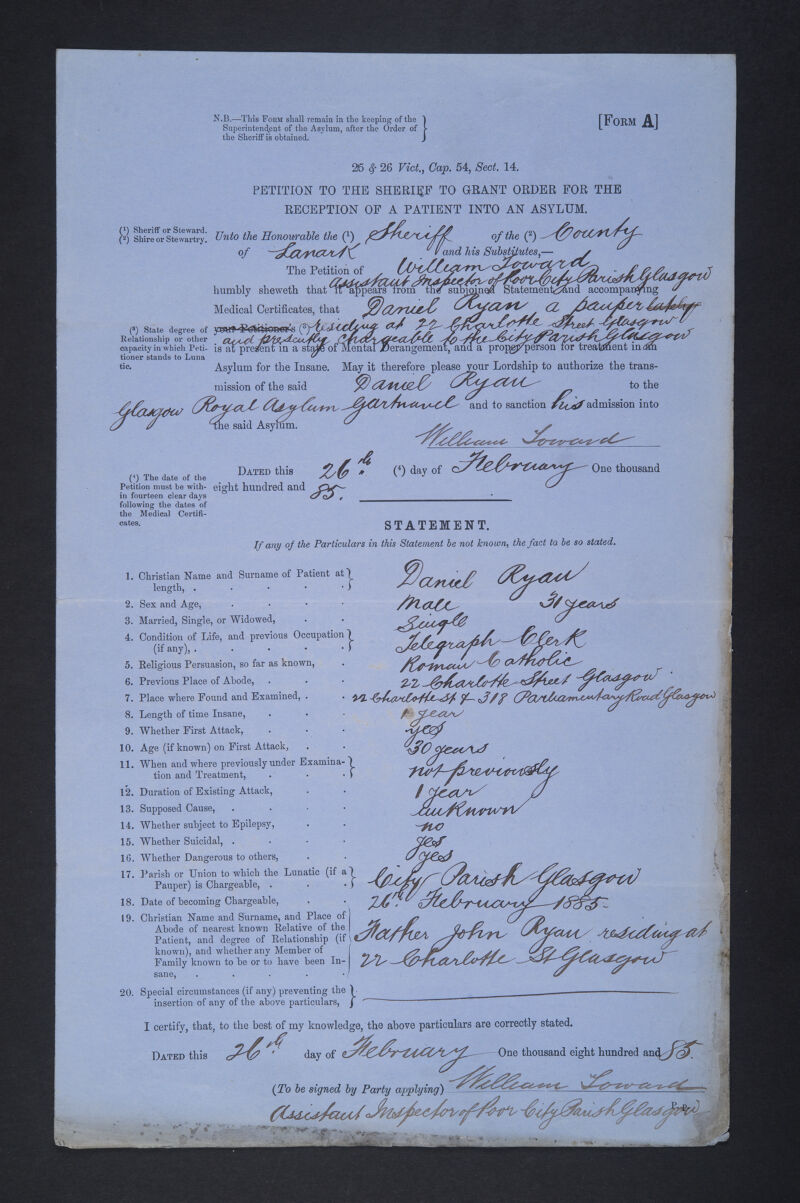 N.B.—This Form shall remain in the keeping of the
Superintendent of the Asylum, after the Order of
the Sheriff is obtained.
[Form A]
25 & 26 Vict., Cap. 54, Sect. 14.
PETITION TO THE SHERIFF TO GRANT ORDER FOR THE
RECEPTION OF A PATIENT INTO AN ASYLUM.
(¹) Sheriff or Steward.
(²) Shire or Stewartry.
Unto the Honourable the (¹) Sheriff of the (²) County
of Lanark and his Substitutes,—
The Petition of William Toward
Assistant Inspector of Poor City Parish Glasgow
humbly sheweth that it appears from the subjoined Statement and accompanying
Medical Certificates, that Daniel Ryan a pauper lately
(³) State degree of Relationship or other capacity in which Petitioner stands to Lunatic.
your Petitioner's (³) residing at 22 Charlotte Street Glasgow
and presently chargeable to the City Parish Glasgow
is at present in a state of Mental Derangement, and a proper person for treatment in an
Asylum for the Insane. May it therefore please your Lordship to authorize the trans-
mission of the said Daniel Ryan to the
Glasgow Royal Asylum Gartnavel and to sanction his admission into
the said Asylum.
William Toward
(⁴) The date of the
Petition must be with-
in fourteen clear days
following the dates of
the Medical Certifi-
cates.
Dated this 26th (⁴) day of February One thousand
eight hundred and 85.
STATEMENT.
If any of the Particulars in this Statement be not known, the fact to be so stated.
1. Christian Name and Surname of Patient at length, . Daniel Ryan
2. Sex and Age, Male 31 years
3. Married, Single, or Widowed, Single
4. Condition of Life, and previous Occupation (if any), . Telegraph Clerk
5. Religious Persuasion, so far as known, Roman Catholic
6. Previous Place of Abode, 22 Charlotte Street Glasgow
7. Place where Found and Examined, 22 Charlotte St & 318 Parliamentary Road Glasgow
8. Length of time Insane, 1 year
9. Whether First Attack, yes
10. Age (if known) on First Attack, 30 years
11. When and where previously under Examina-
tion and Treatment, not previously
12. Duration of Existing Attack, 1 year
13. Supposed Cause, unknown
14. Whether subject to Epilepsy, no
15. Whether Suicidal, yes
16. Whether Dangerous to others, yes
17. Parish or Union to which the Lunatic (if a
Pauper) is Chargeable, City Parish Glasgow
18. Date of becoming Chargeable, 26th February 1885
19. Christian Name and Surname, and Place of
Abode of nearest known Relative of the
Patient, and degree of Relationship (if
known), and whether any Member of
Family known to be or to have been In-
sane,
Father John Ryan residing at
22 Charlotte St Glasgow
20. Special circumstances (if any) preventing the
insertion of any of the above particulars,
I certify, that, to the best of my knowledge, the above particulars are correctly stated.
Dated this 26th day of February One thousand eight hundred and 85.
(To be signed by Party applying) William Toward
Assistant Inspector of Poor City Parish Glasgow